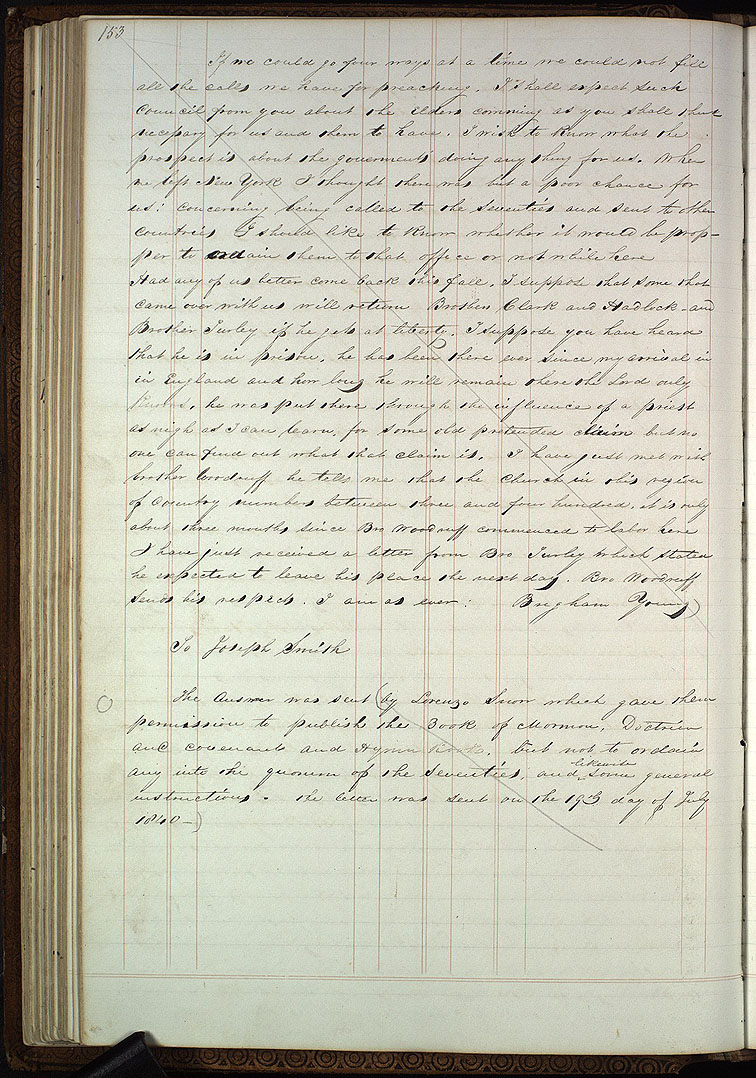 153
If we could go four ways at a time we could not fill
all the calls we have for preaching. I shall expect such
Council from you about the elders comming as you shall think
necessary for us and them to have. I wish to know what the
prospect is about the government's doing any thing for us. When
we left New York I thought there was but a poor chance for
us: concerning being called to the seventies and sent to other
countries I should like to know whether it would be prop-
per to ordain them to that office or not while here
Had any of us better come back this fall. I suppose that some that
came over with us will return Brothers Clark and Hadlock and
Brother Turley if he gets at liberty. I suppose you have heard
that he is in prison, he has been there ever since my arrival in
in England and how long he will remain there the Lord only
knows, he was put there through the influence of a priest
as nigh as I can learn for some old pretended claim but no
one can find out what that claim is. I have just met with
brother Woodruff he tells me that the Church in this region
of country numbers between three and four hundred, it is only
about three months since Bro Woodruff commenced to labor here
I have just received a letter from Bro Turley which stated
he expected to leave his place the next day. Bro Woodruff
sends his respects. I am as ever: Brigham Young)
To Joseph Smith
The Answer was sent (by Lorenzo Snow which gave them
permission to publish the Book of Mormon, Doctrine
and covenants and Hymn Book, but not to ordain
any into the quorum of the Seventies, and likewise some general
instructions. the letter was sent on the 19th day of July
1840-)